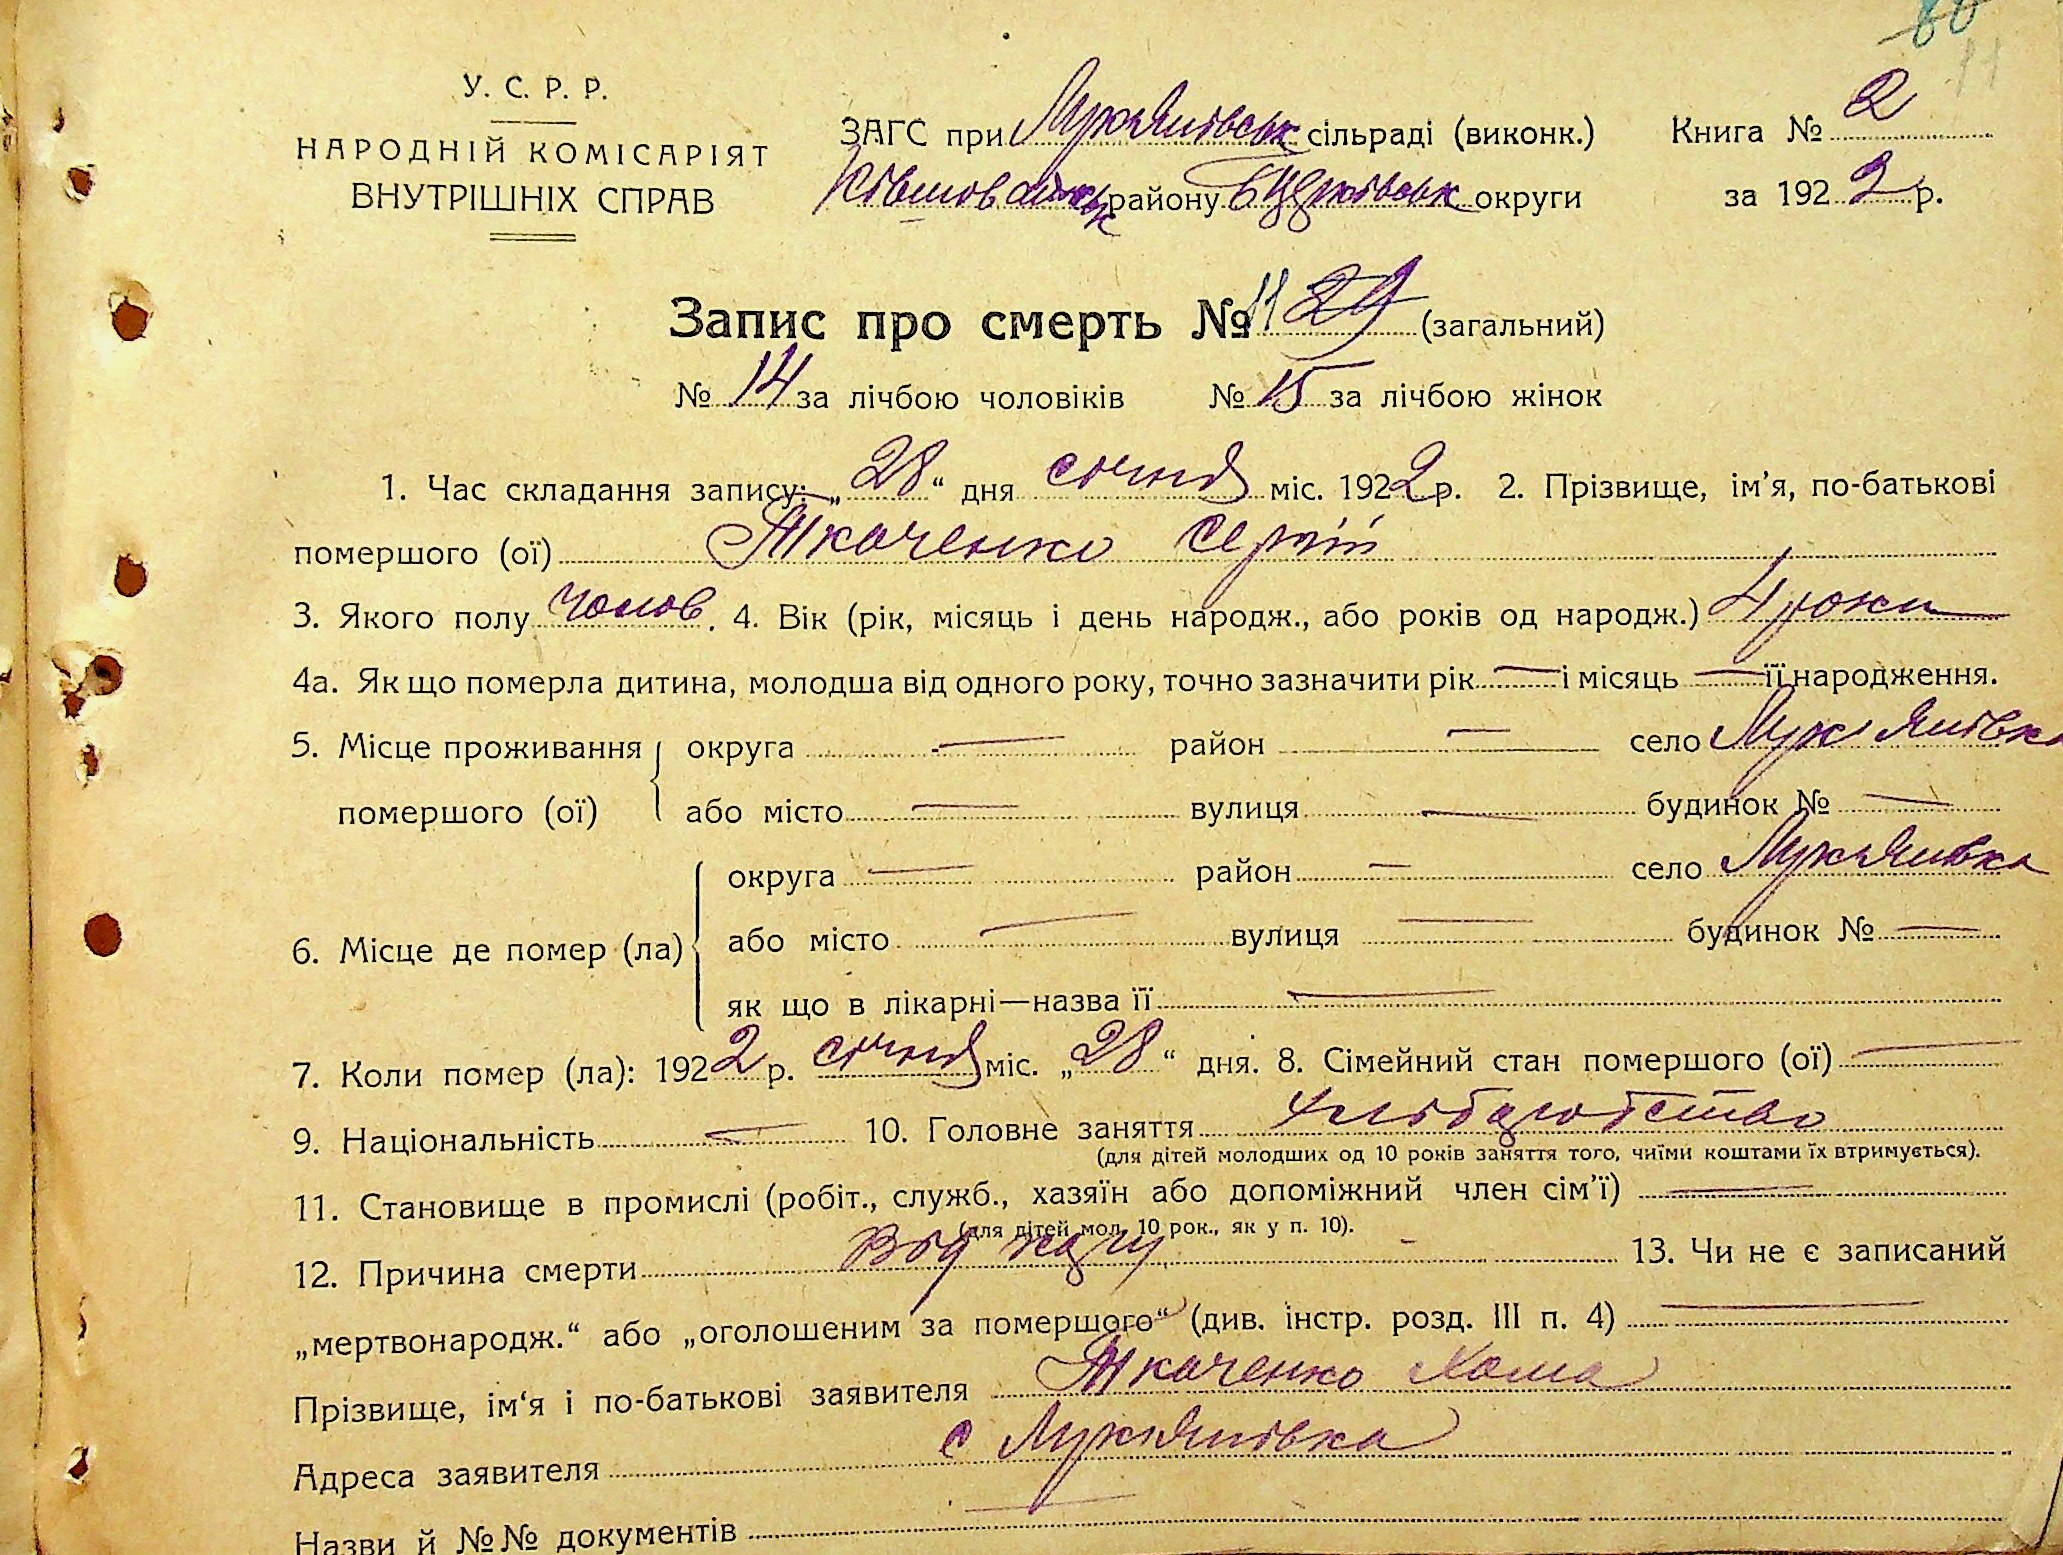 80
11
У. С. Р. Р.
НАРОДНІЙ КОМІСАРІЯТ
ВНУТРІШНІХ СПРАВ
ЗАГС при Лукянівськ сільраді (виконк.) Книга № 2
району округи за 1922 р.
Запис про смерть № 11 29 (загальний)
№ 14 за лічбою чоловіків № 15 за лічбою жінок
1. Час складання запису: „28“ дня січня міс. 1922 р. 2. Прізвище, ім'я, по-батькові
помершого (ої) Ткаченко Сергій
3. Якого полу чолов. 4. Вік (рік, місяць і день народж., або років од народж.) 4 роки
4а. Як що померла дитина, молодша від одного року, точно зазначити рік — і місяць — її народження.
5. Місце проживання округа — район — село Лукянівка
помершого (ої) або місто — вулиця — будинок № —
округа — район — село Лукянівка
6. Місце де помер (ла) або місто — вулиця — будинок № —
як що в лікарні—назва її —
7. Коли помер (ла): 1922 р. січня міс. „28“ дня. 8. Сімейний стан помершого (ої) —
9. Національність — 10. Головне заняття хліборобство
(для дітей молодших од 10 років заняття того, чиїми коштами їх втримується).
11. Становище в промислі (робіт., служб., хазяїн або допоміжний член сім'ї) —
(для дітей мол. 10 рок., як у п. 10).
12. Причина смерти Від 13. Чи не є записаний
„мертвонародж.“ або „оголошеним за помершого“ (див. інстр. розд. III п. 4) —
Прізвище, ім'я і по-батькові заявителя Ткаченко Хома
Адреса заявителя с Лукянівка
Назви й №№ документів —